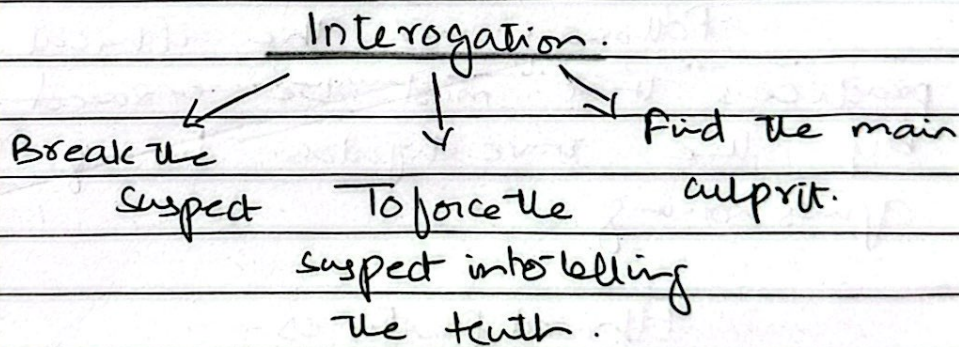 Interogation.
Break the
suspect
To force the
suspect into telling
the truth.
Find the main
culprit.